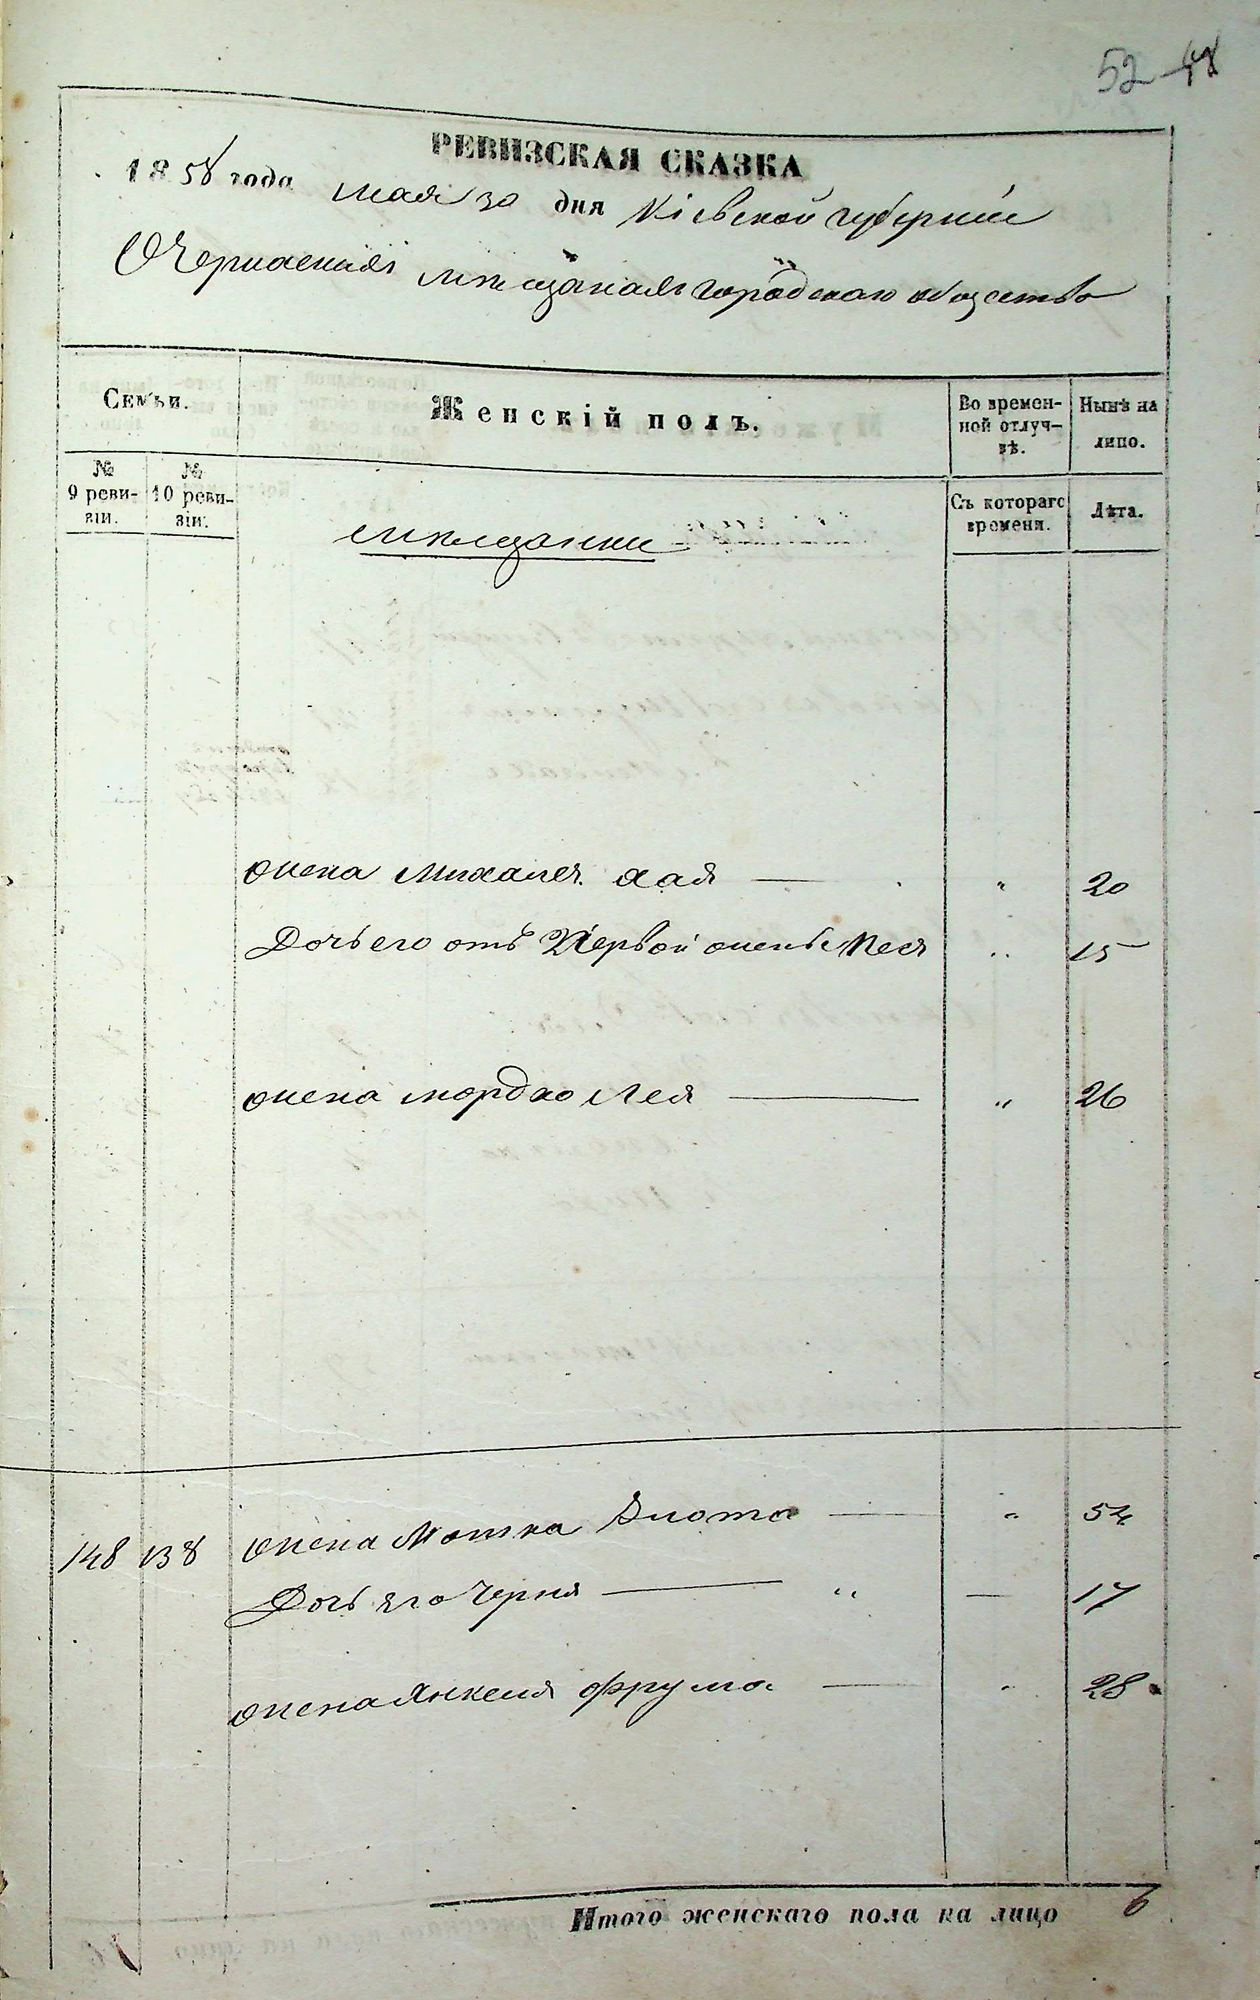 52 48
РЕВИЗСКАЯ СКАЗКА
1858 года мая 30 дня Кіевской губерніи
О Черкаскихъ мѣщанахъ городскаго общества
Семьи.
Женскій полъ.
Во времен-
ной отлуч-
кѣ.
Нынѣ на
лицо.
№
9 реви-
зіи.
№
10 реви-
зіи.
Съ котораго
времени.
Лѣта.
мѣщанки
жена Михаля Хая — " 20
Дочь его отъ Первой жены Песя " 15
жена Мордко Лея — " 26
148 138 жена Мошка Злота — " 54
Дочь его Черня — " — 17
жена Янкеля Фрума — " 28
Итого женскаго пола на лицо 6